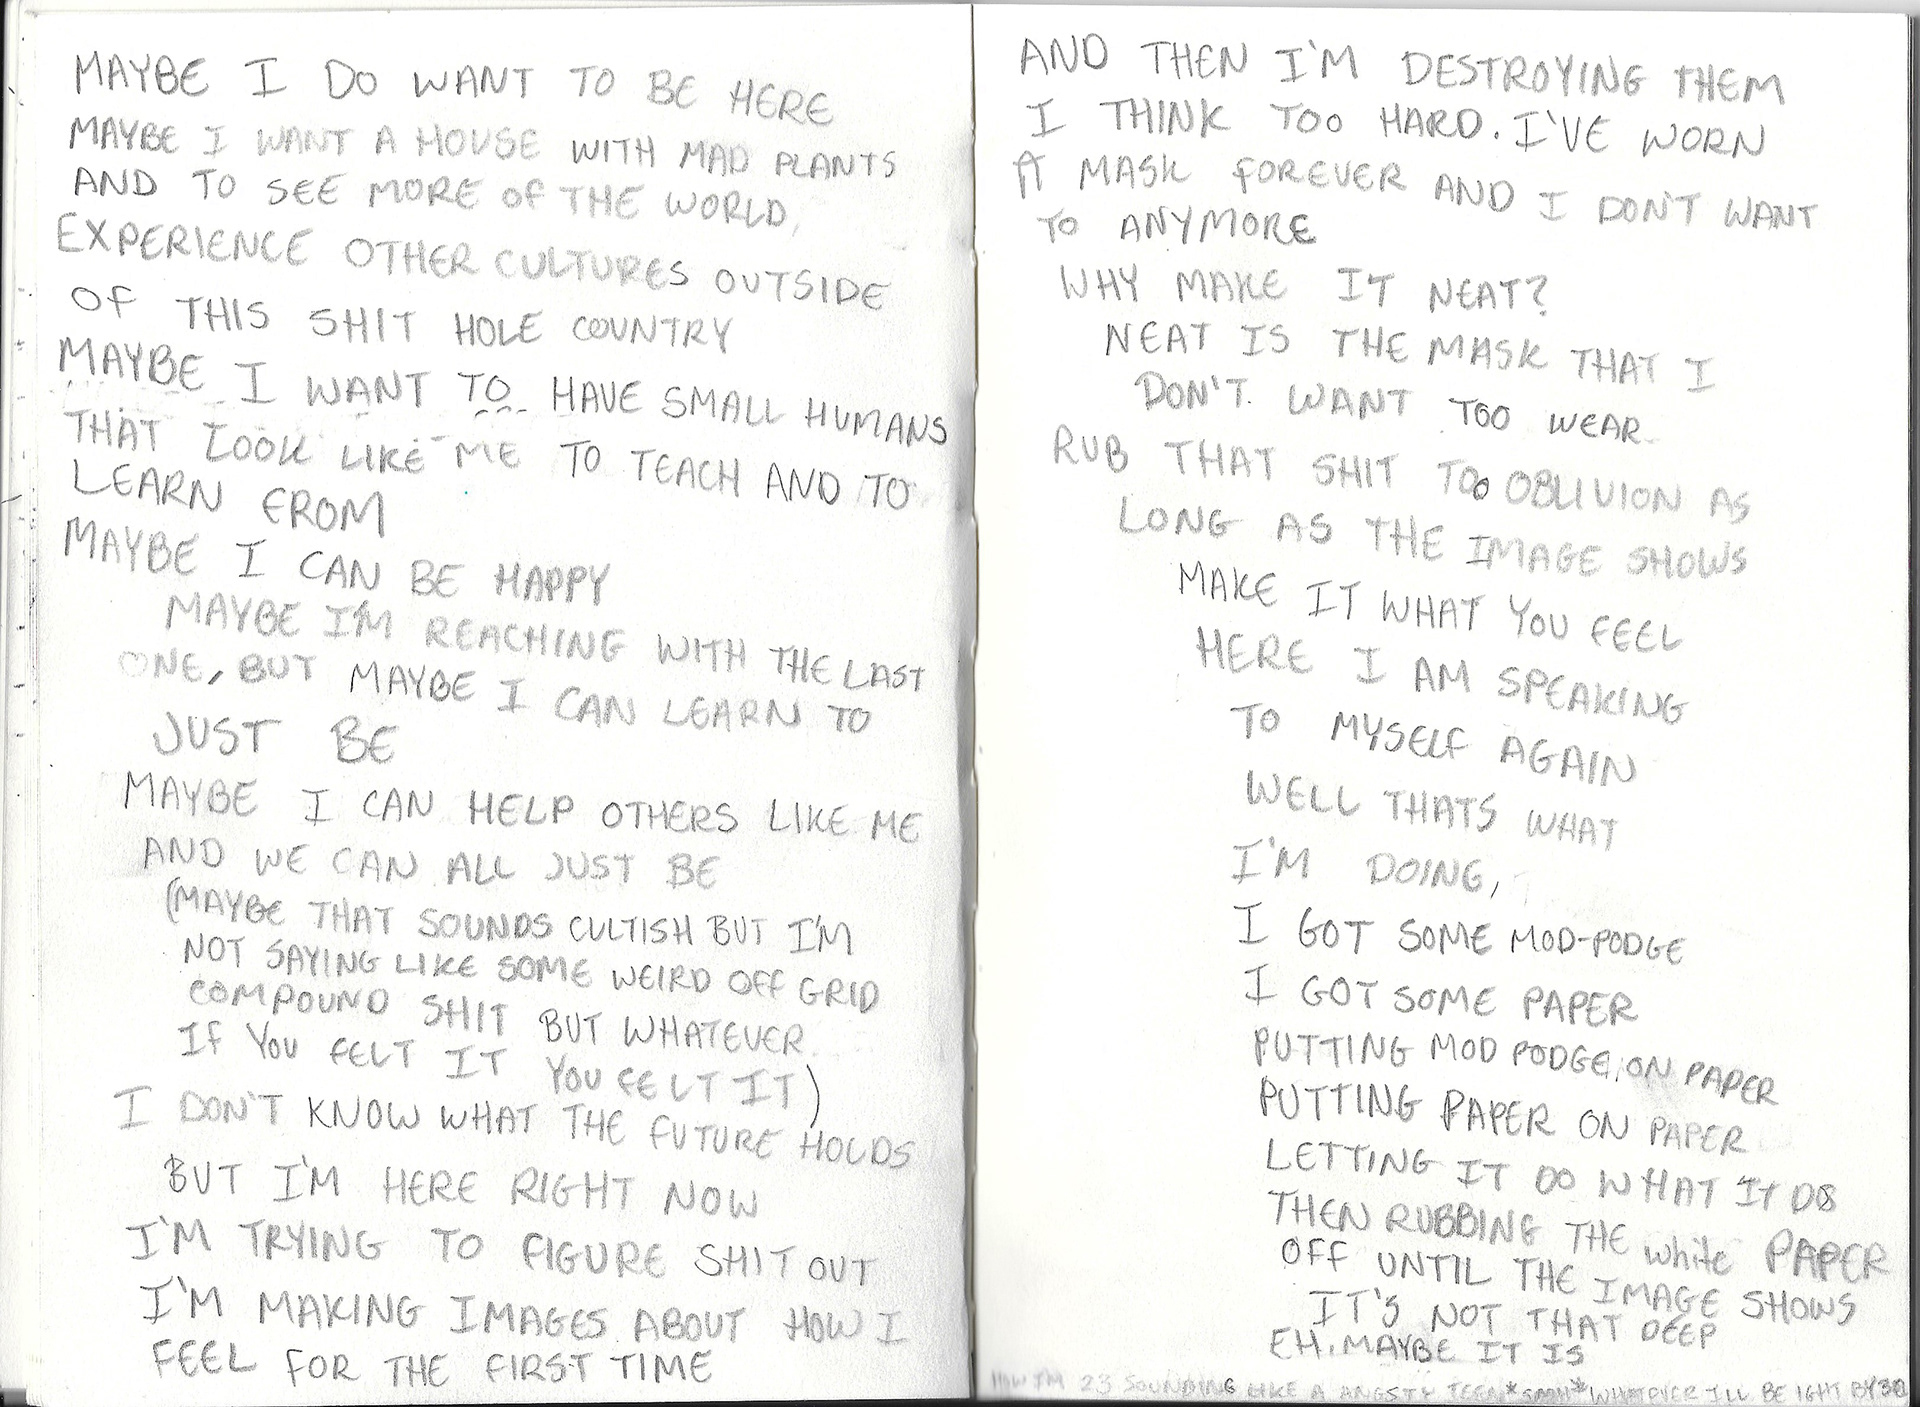 MAYBE I DO WANT TO BE HERE
MAYBE I WANT A HOUSE WITH MAD PLANTS
AND TO SEE MORE OF THE WORLD,
EXPERIENCE OTHER CULTURES OUTSIDE
OF THIS SHIT HOLE COUNTRY
MAYBE I WANT TO HAVE SMALL HUMANS
THAT LOOK LIKE ME TO TEACH AND TO
LEARN FROM
MAYBE I CAN BE HAPPY
MAYBE I'M REACHING WITH THE LAST
ONE, BUT MAYBE I CAN LEARN TO
JUST BE
MAYBE I CAN HELP OTHERS LIKE ME
AND WE CAN ALL JUST BE
(MAYBE THAT SOUNDS CULTISH BUT I'M
NOT SAYING LIKE SOME WEIRD OFF GRID
COMPOUND SHIT BUT WHATEVER
IF YOU FELT IT YOU FELT IT)
I DON'T KNOW WHAT THE FUTURE HOLDS
BUT I'M HERE RIGHT NOW
I'M TRYING TO FIGURE SHIT OUT
I'M MAKING IMAGES ABOUT HOW I
FEEL FOR THE FIRST TIME
AND THEN I'M DESTROYING THEM
I THINK TOO HARD. I'VE WORN
A MASK FOREVER AND I DON'T WANT
TO ANYMORE
WHY MAKE IT NEAT?
NEAT IS THE MASK THAT I
DON'T WANT TOO WEAR
RUB THAT SHIT TOO OBLIVION AS
LONG AS THE IMAGE SHOWS
MAKE IT WHAT YOU FEEL
HERE I AM SPEAKING
TO MYSELF AGAIN
WELL THATS WHAT
I'M DOING,
I GOT SOME MOD-PODGE
I GOT SOME PAPER
PUTTING MOD PODGE ON PAPER
PUTTING PAPER ON PAPER
LETTING IT DO WHAT IT DO
THEN RUBBING THE white PAPER
OFF UNTIL THE IMAGE SHOWS
IT'S NOT THAT DEEP
EH. MAYBE IT IS
I'M 23 SOUNDING LIKE A ANGSTY TEEN WHATEVER I'LL BE IGHT BY 30